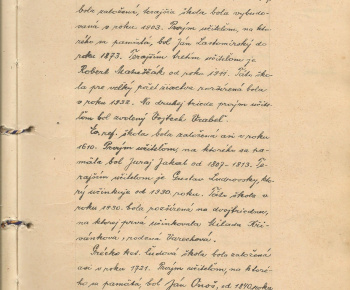 bola založená, terajšia škola bola vybudo-
vaná v roku 1903. Prvým učiteľom, na kto-
rého sa pamätá, bol Ján do
roku 1873. Terajším učiteľom je
Robert od roku 1911. Táto ško-
la pre veľký počet žiactva rozšírená bola
v roku 1932. Na druhej triede prvým učite-
ľom bol zvolený Vojtech Vrabel.
Ev. ref. škola bola založená asi v roku
1610. Prvým učiteľom, na ktorého sa pa-
mätá bol Juraj Jakab od 1807-1813. Te-
rajším učiteľom je Gustav Ludrovský, kto-
rý učinkuje od 1930. roku. Táto škola v
roku 1930. bola rozšírená na dvojtriednu,
na ktorej prvá učinkovala Milada Kři-
vánková, rodená Varechová.
Grécko kat. ľudová škola bola založená
asi v roku 1721. Prvým učiteľom, na ktoré-
ho sa pamätá, bol Ján Oroš, od 1890. roku